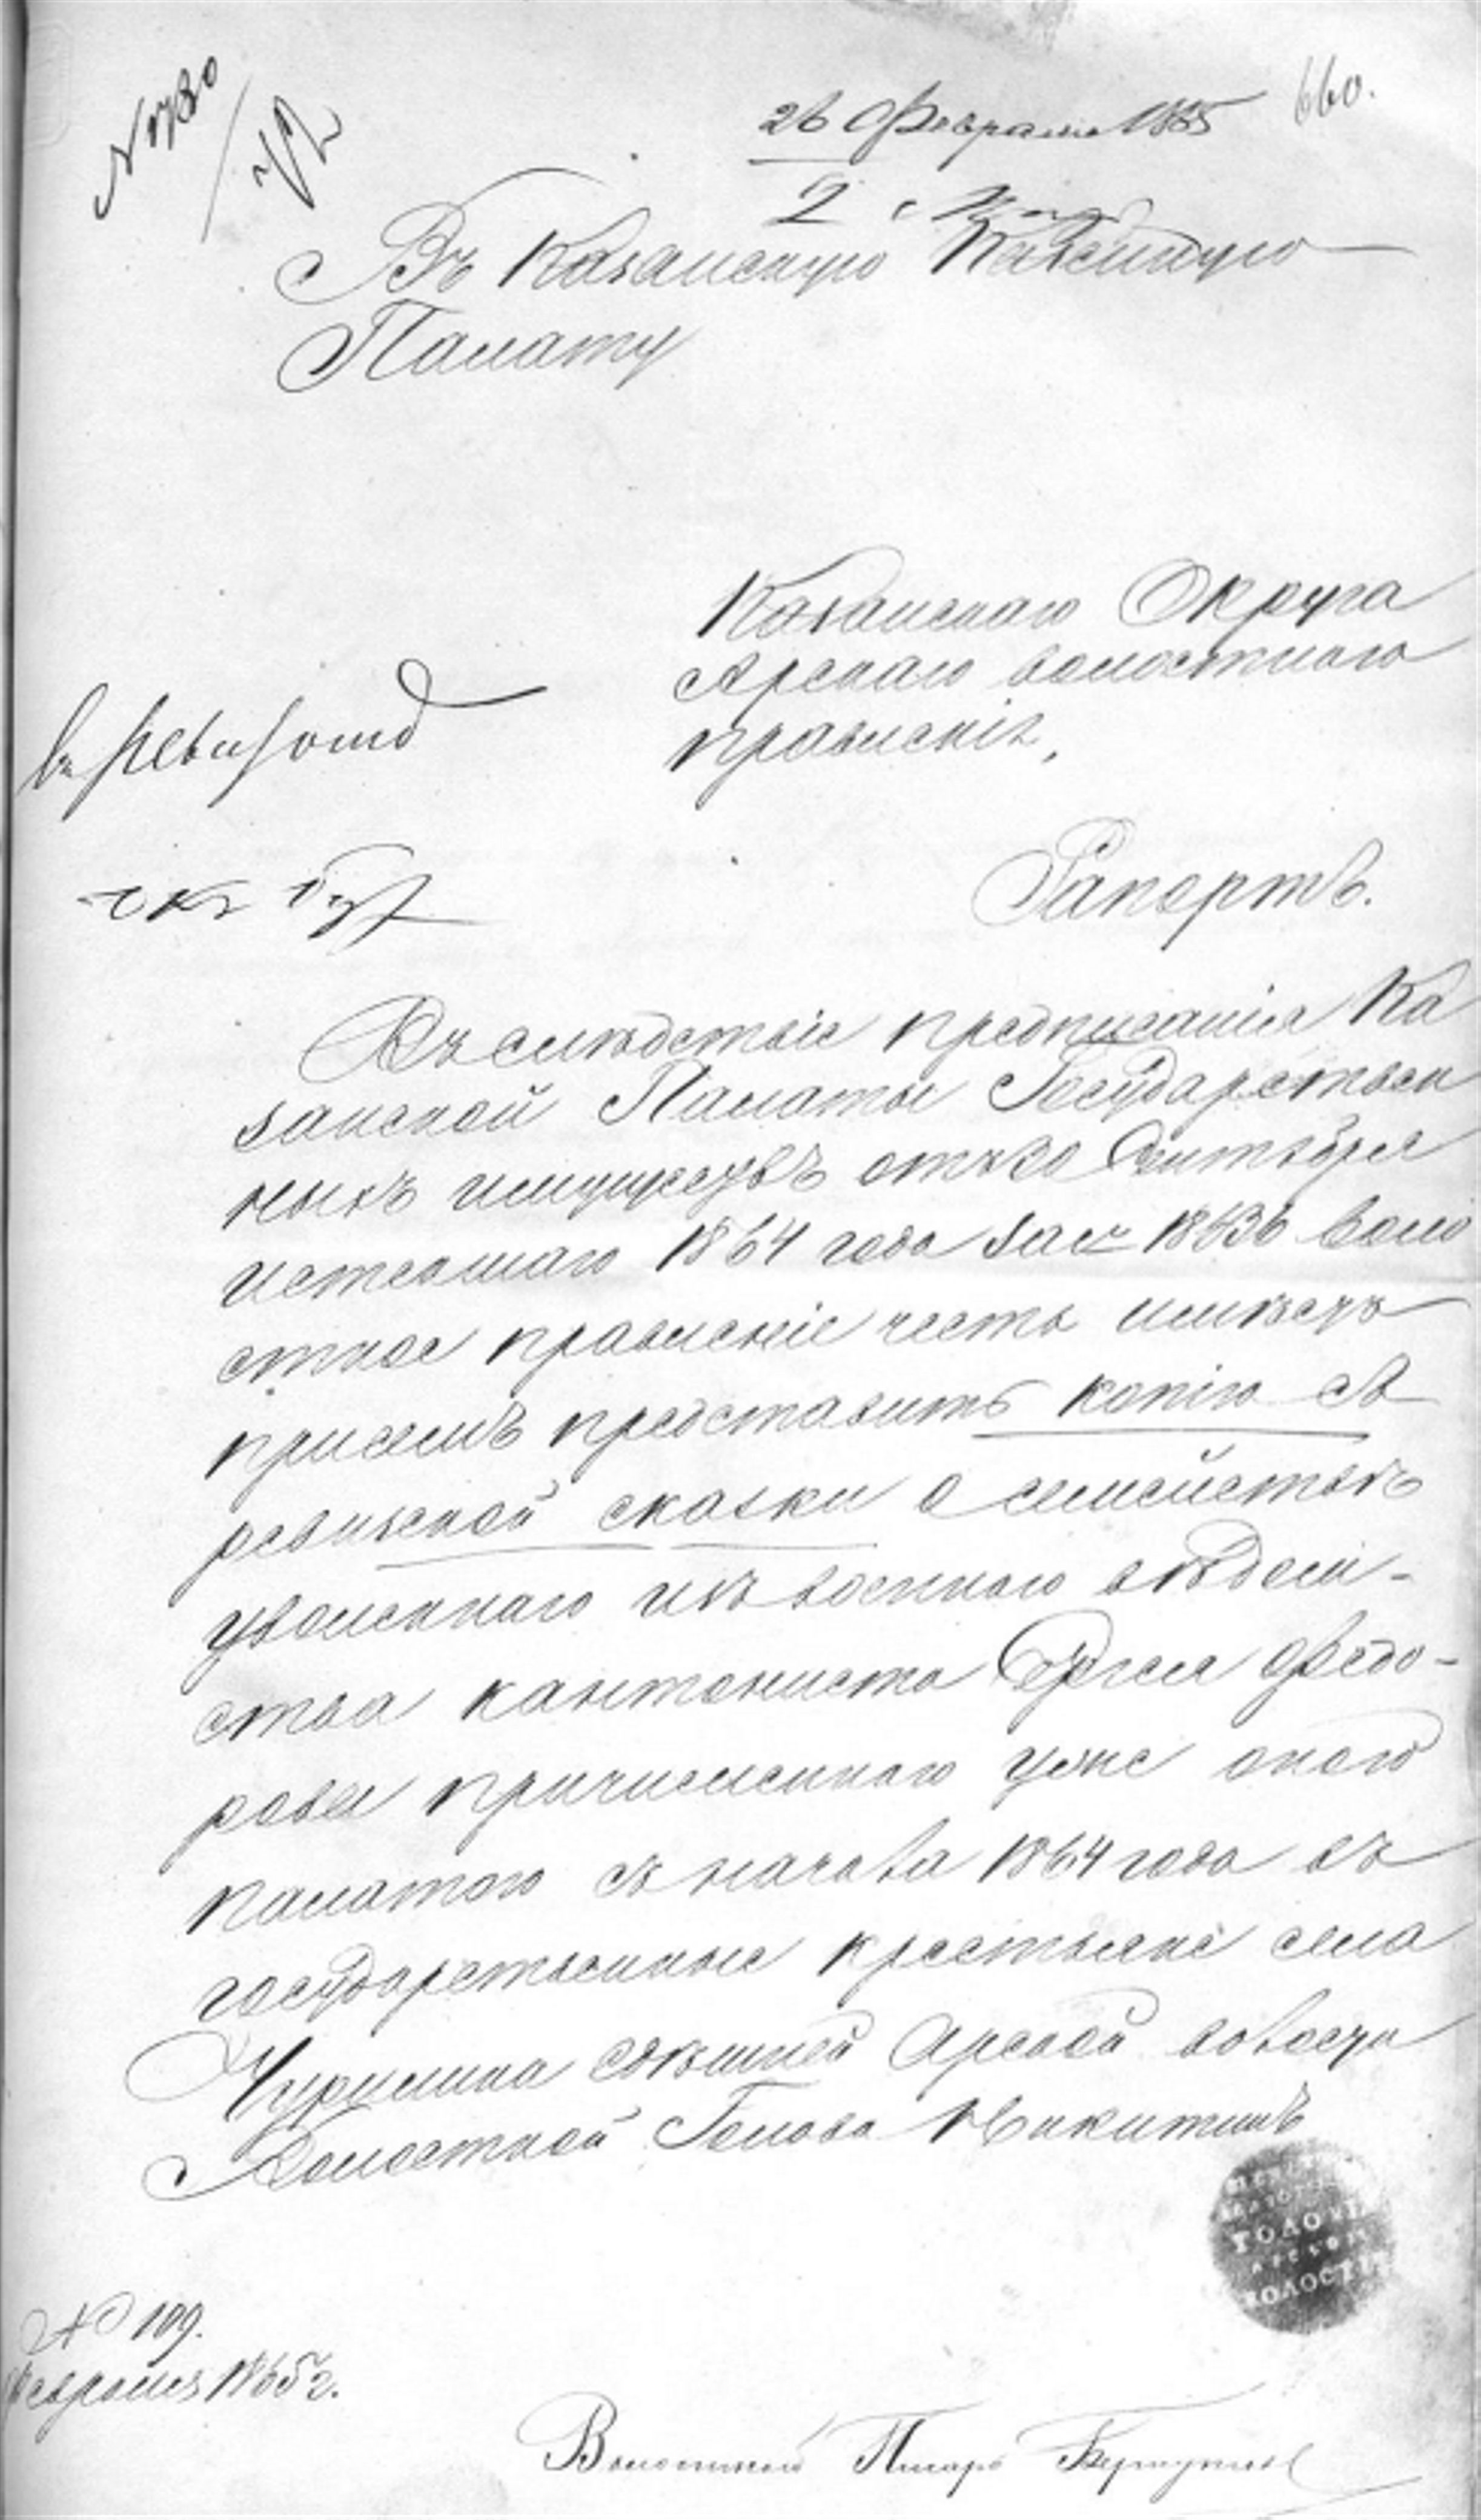 № 1780
26 Февраля 1865
660.
2 Мар
Въ Казанскую Казенную
Палату
Казанскаго Округа
Арскаго волостнаго
правленія,
въ Ревиз отд
Рапортъ.
Въ слѣдствіе предписанія Ка
занской Палаты Государствен
ныхъ имуществъ отъ 30 Сентября
истекшаго 1864 года за № 18636 воло
стное правленіе честь имѣетъ
присемъ представить копію съ
ревизской сказки о семействѣ
уволеннаго изъ военнаго вѣдом-
ства кантониста Сергея Федо-
рова причисленнаго уже оною
палатою съ начала 1864 года въ
государственные крестьяне села
Чурилина здѣшней Арской волости
Волостной Голова Никитинъ
ГОЛОВЫ
АРСКОЙ
ВОЛОСТИ
№ 109.
Февраля 1865 г.
Волостной Писарь